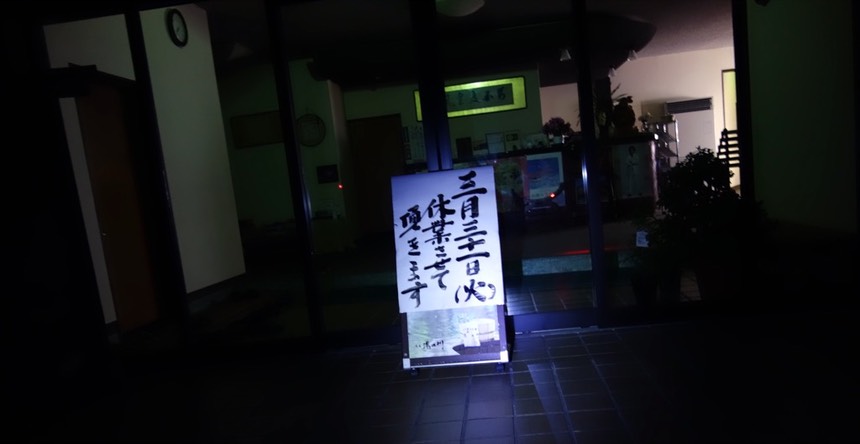 三月三十一日(火)
休業させて
頂きます